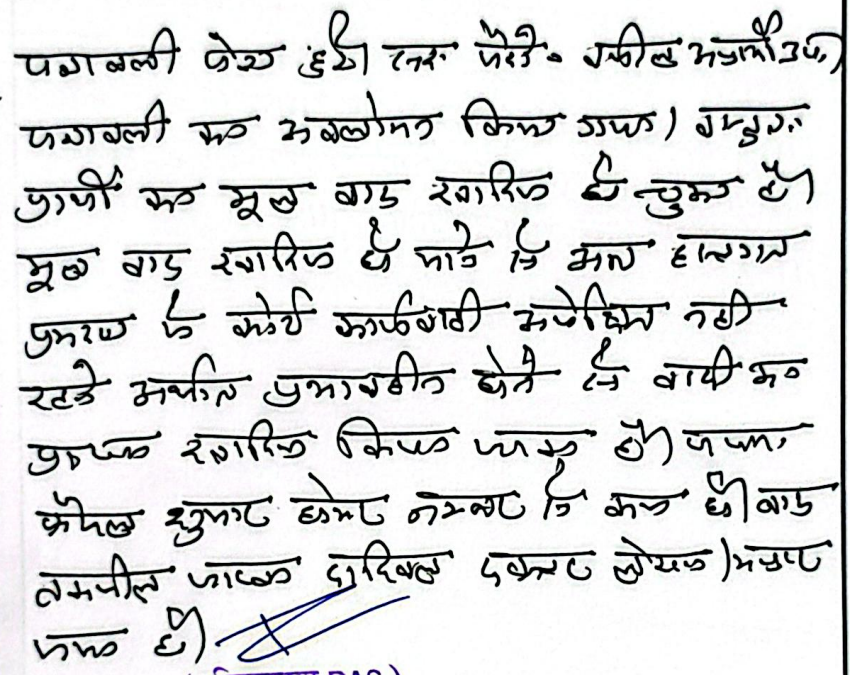 पत्रावली पेश हुयी। वकील अप्रार्थी उप.)
पत्रावली का अवलोकन किया गया। वस्तुतः
प्रार्थी का मूल वाद खारिज हो चुका है।
मूल वाद खारिज हो जाने से अब हस्तगत
प्रकरण में कोई कार्यवाही अपेक्षित नहीं
रहने अर्थात प्रभावहीन होने से वादी का
प्रा.पत्र खारिज किया जाता है।
फैसल शुमार होकर नम्बर से कम हो। बाद
तकमील जाब्ता दाखिल दफ्तर होवे।
है)